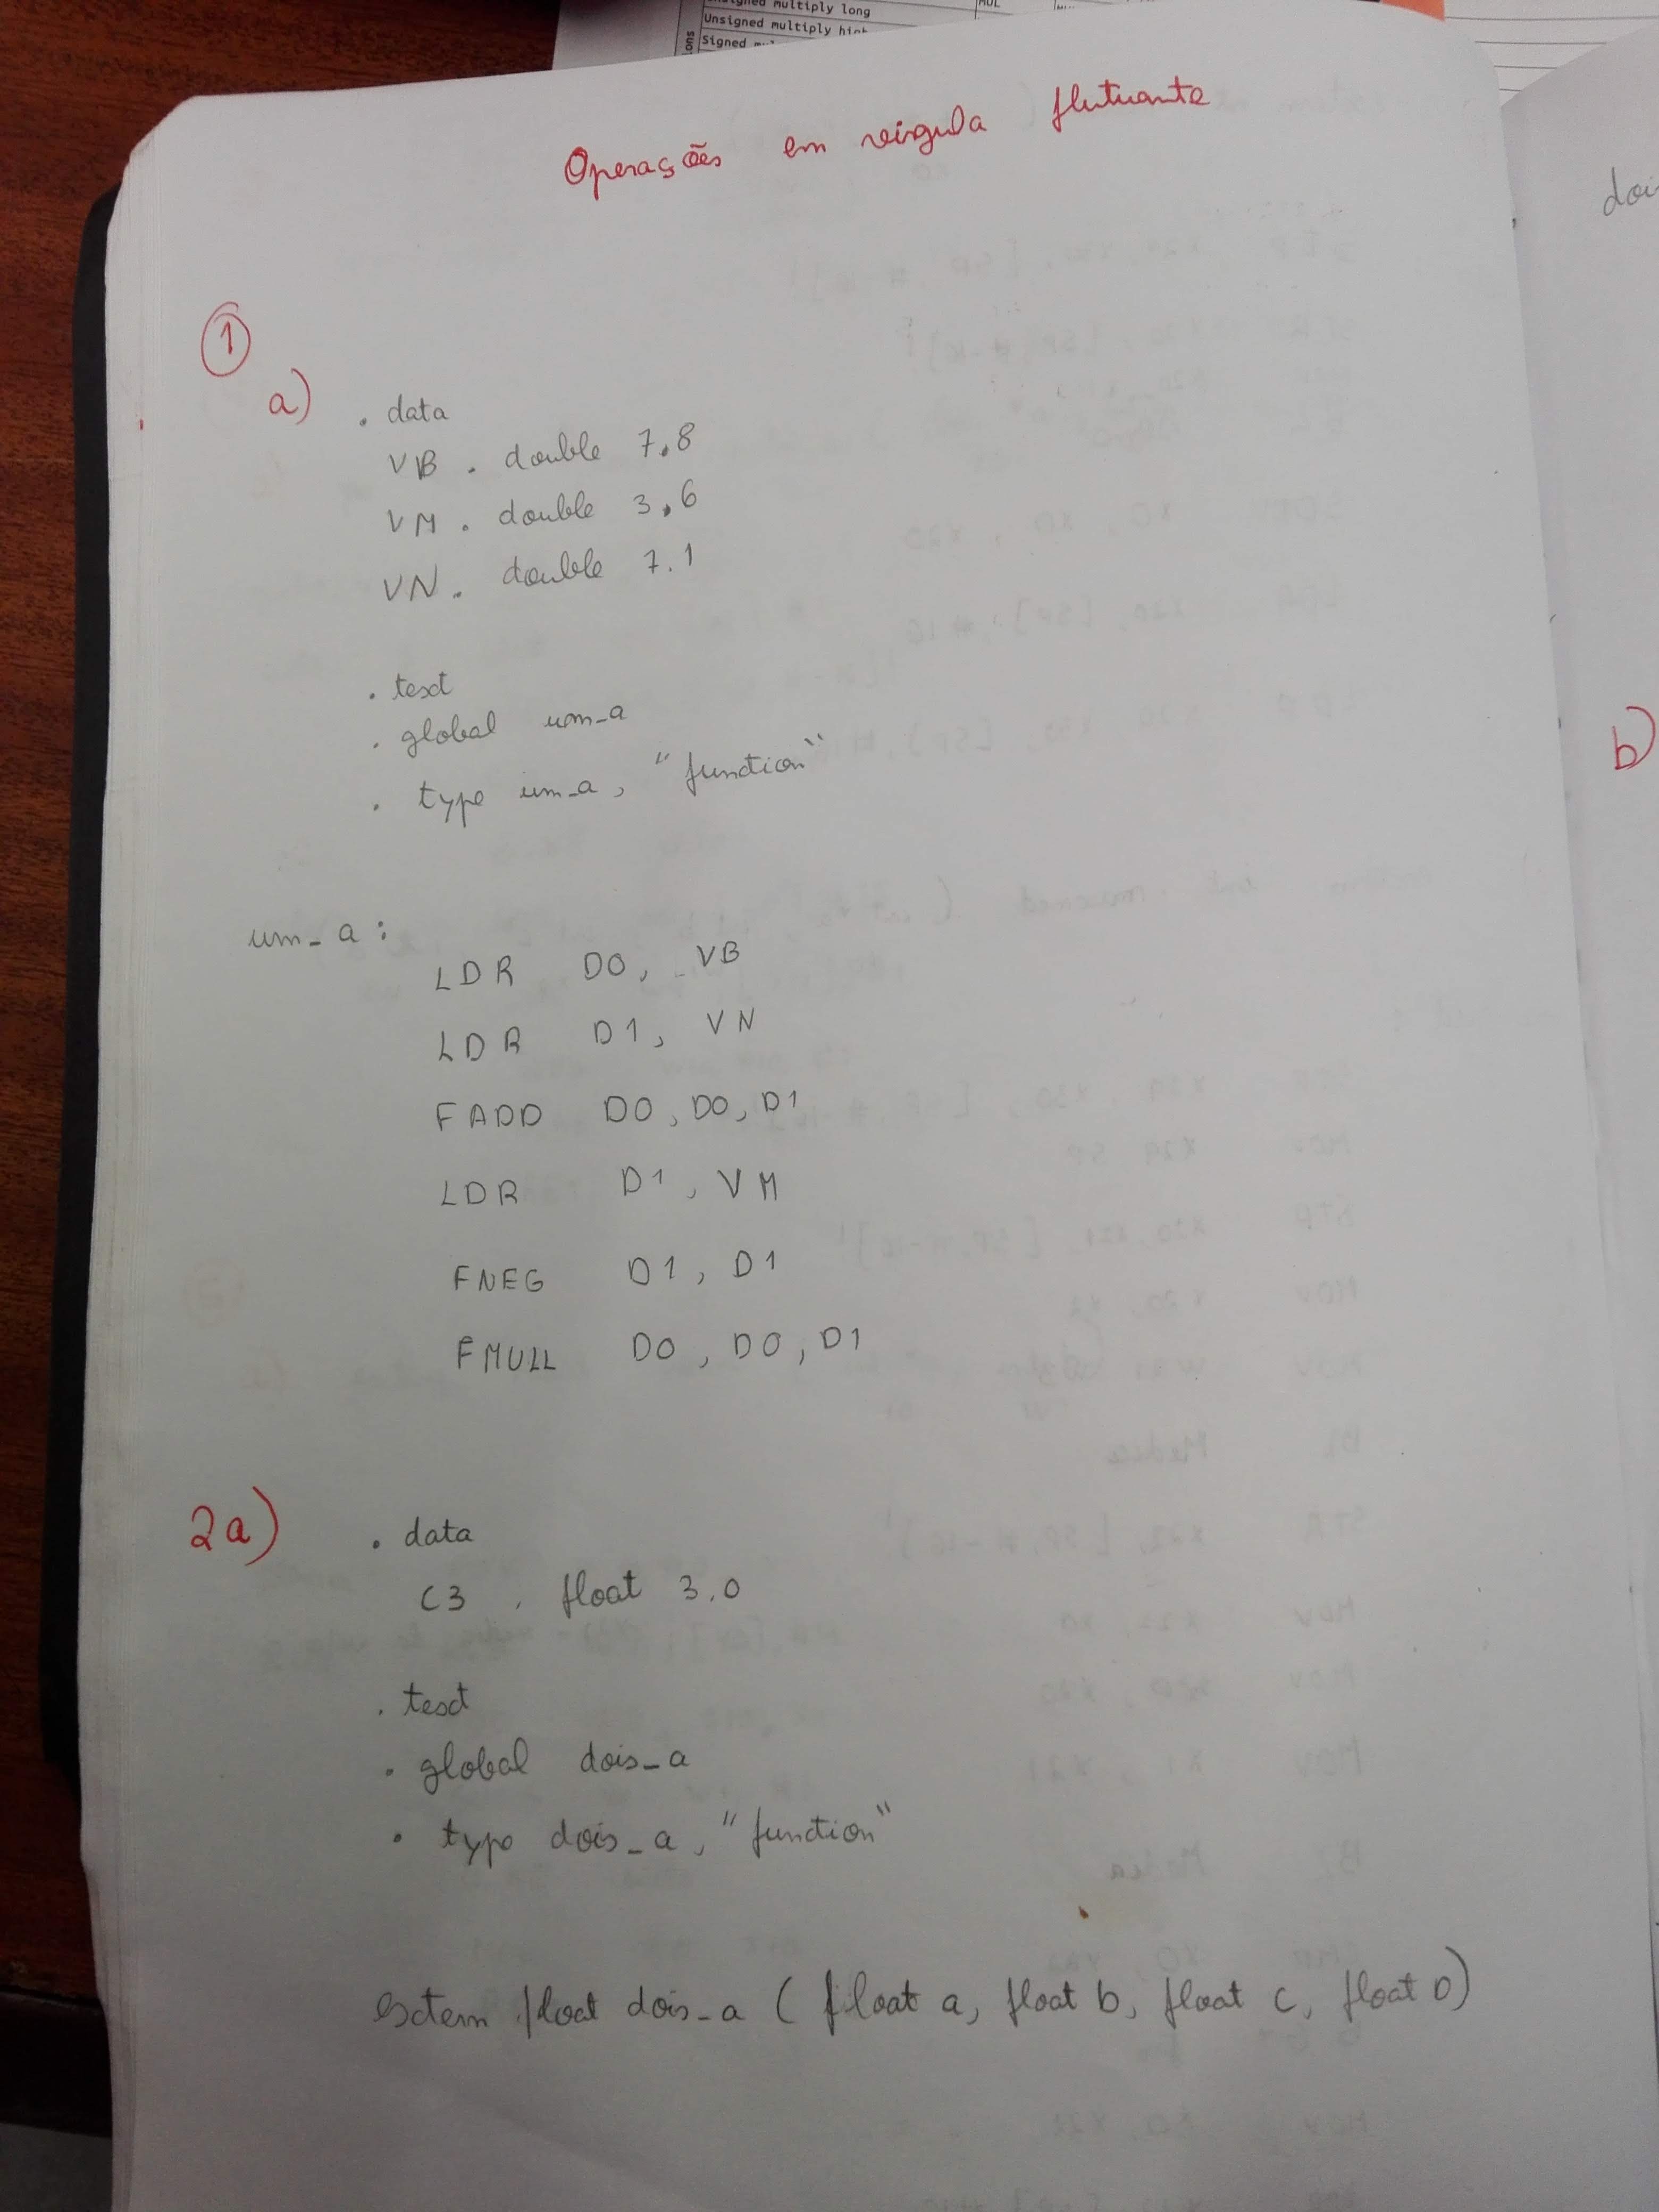 Unsigned multiply long
Unsigned multiply high
Signed
Operações em vírgula flutuante
1
a) .data
VB .double 7.8
VM .double 3.6
VN .double 7.1
.text
.global um_a
.type um_a, "function"
um_a:
LDR D0, VB
LDR D1, VN
FADD D0, D0, D1
LDR D1, VM
FNEG D1, D1
FMULL D0, D0, D1
2a) .data
C3 .float 3.0
.text
.global dois_a
.type dois_a, "function"
extern float dois_a (float a, float b, float c, float D)
b)